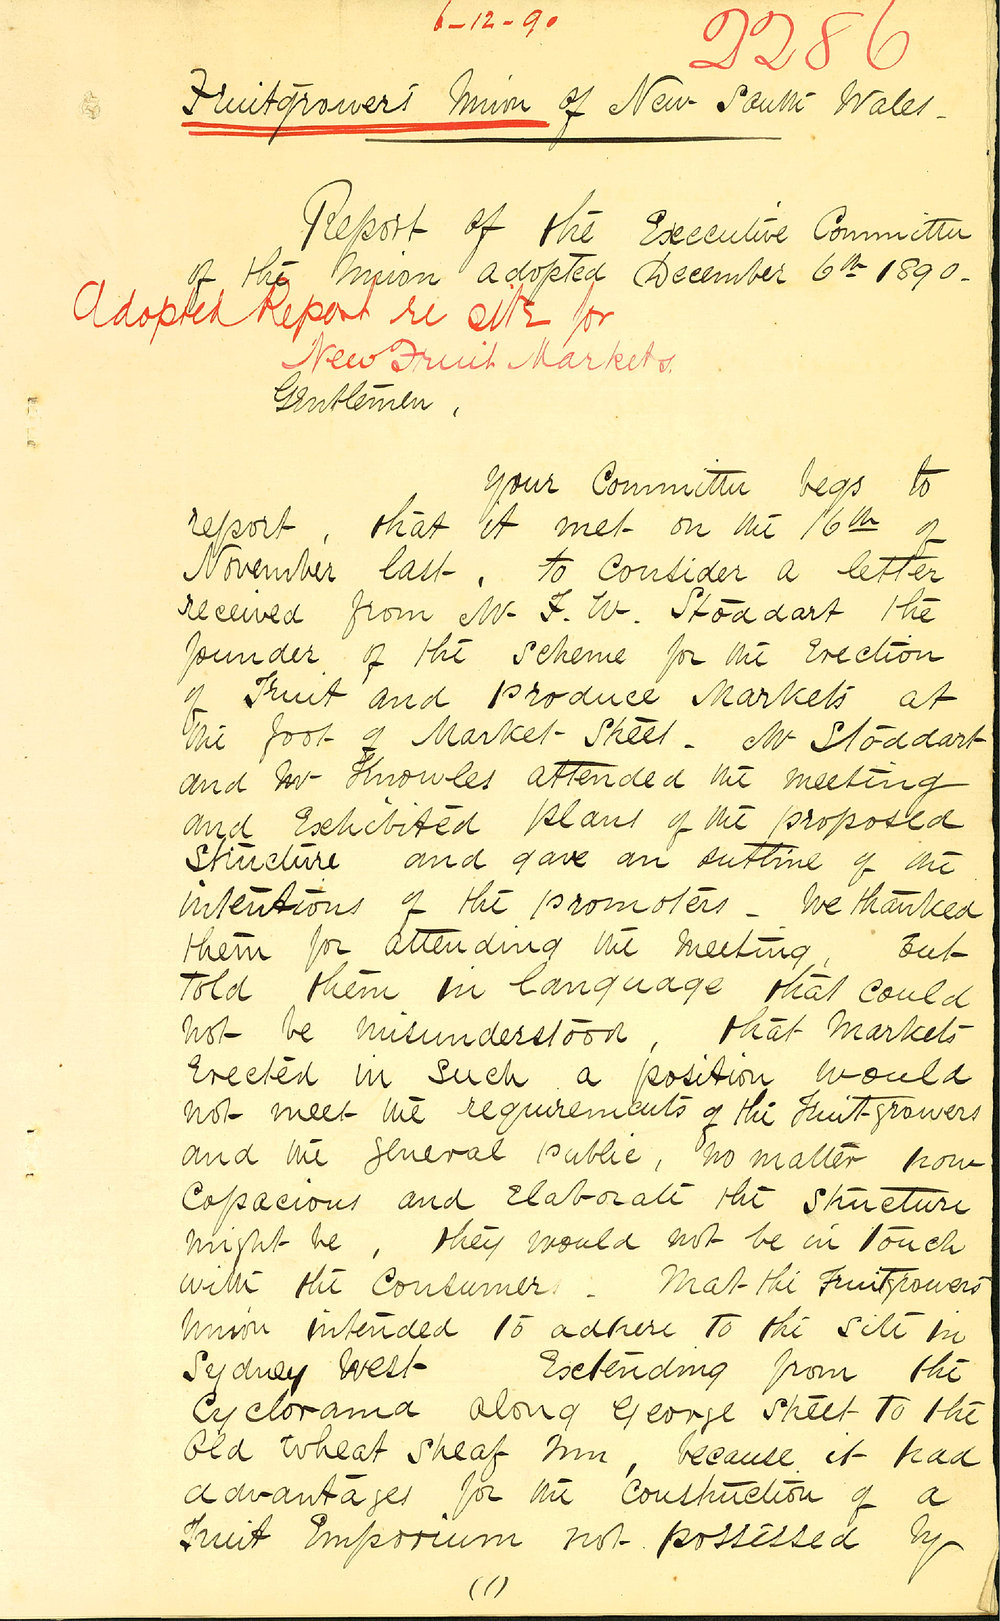 6-12-90
2286
Fruitgrowers Union of New South Wales -
Report of the Executive Committee
of the Union adopted December 6th 1890 -
Adopted Report re site for
New Fruit Markets.
Gentlemen,
Your Committee begs to
report, that it met on the 16th of
November last, to consider a letter
received from Mr F. W. Stoddart the
founder of the scheme for the Erection
of Fruit and produce Markets at
the foot of Market Street - Mr Stoddart
and Mr Knowles attended the meeting
and Exhibited plans of the proposed
Structure and gave an outline of the
intentions of the promoters - We thanked
them for attending the meeting, but
told them in language that could
not be misunderstood, that Markets
Erected in Such a position would
not meet the requirements of the Fruitgrowers
and the general public, no matter how
Capacious and Elaborate the Structure
might be, they would not be in touch
with the Consumer - That the Fruitgrowers
Union intended to adhere to the site in
Sydney West Extending from the
Cyclorama along George Street to the
Old Wheat Sheaf Inn, because it had
advantages for the Construction of a
Fruit Emporium not possessed by
(1)